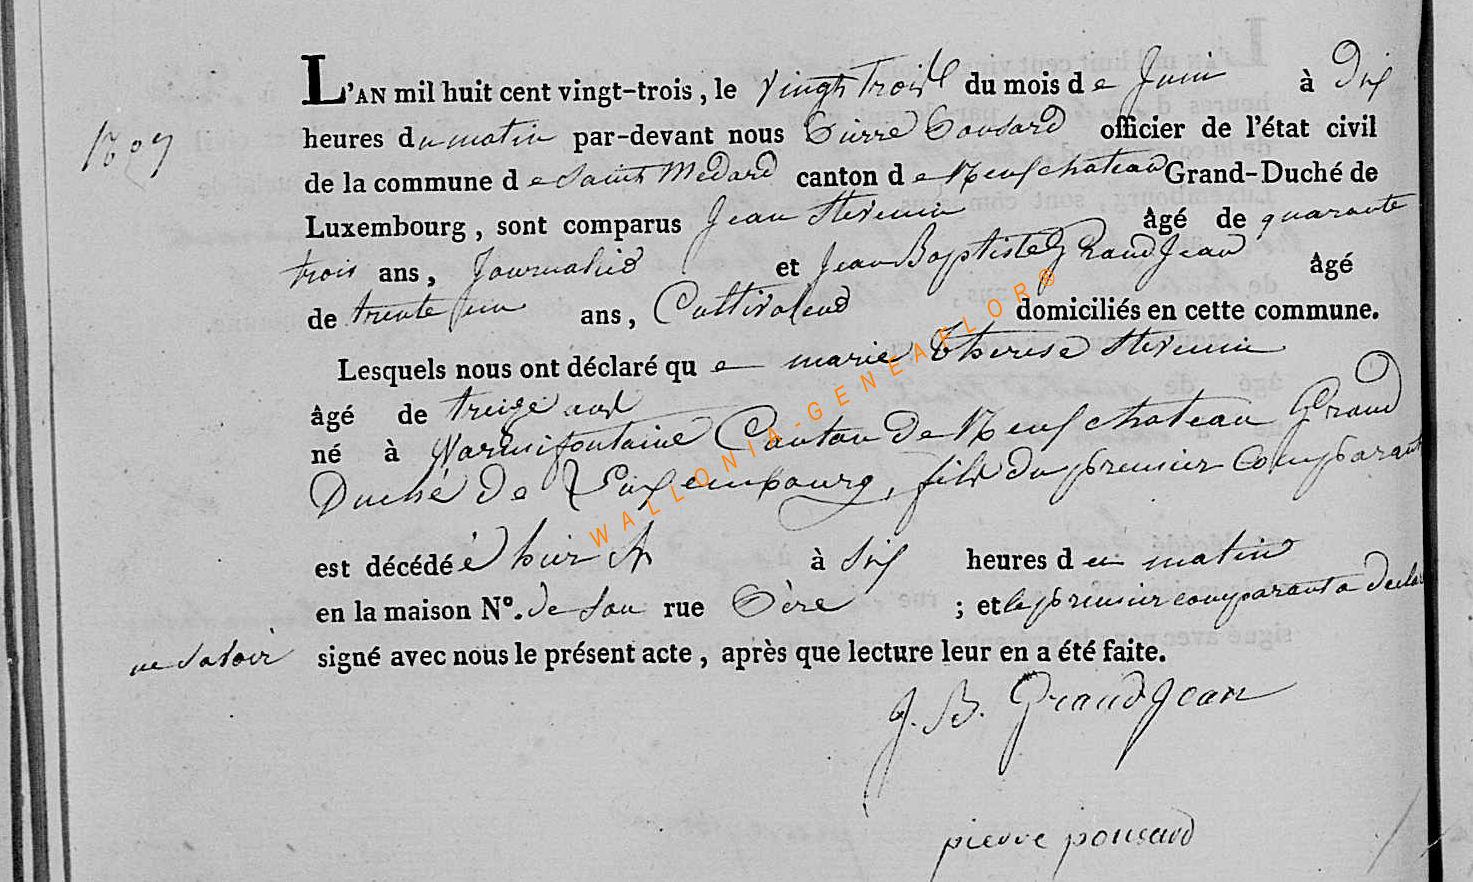 L'AN mil huit cent vingt-trois, le vingt trois du mois de Juin à Dix
heures du matin par-devant nous Pierre Pousard officier de l'état civil
de la commune de Saint Medard canton de Neufchateau Grand-Duché de
Luxembourg, sont comparus Jean âgé de quarante
trois ans, Journalier et Jean Baptiste GrandJean âgé
de trente un ans, Cultivateur domiciliés en cette commune.
Lesquels nous ont déclaré que marie Therese
âgé de treize ans
né à Warmifontaine Canton de Neufchateau Grand
Duché de Luxembourg, fille du premier comparant
est décédé é hier à dix heures du matin
en la maison N°. de son rue Père ; et le premier comparant a declaré
ne savoir signé avec nous le présent acte, après que lecture leur en a été faite.
J. B. GrandJean
pierre pousard
WALLONIA-GENEAFLOR®